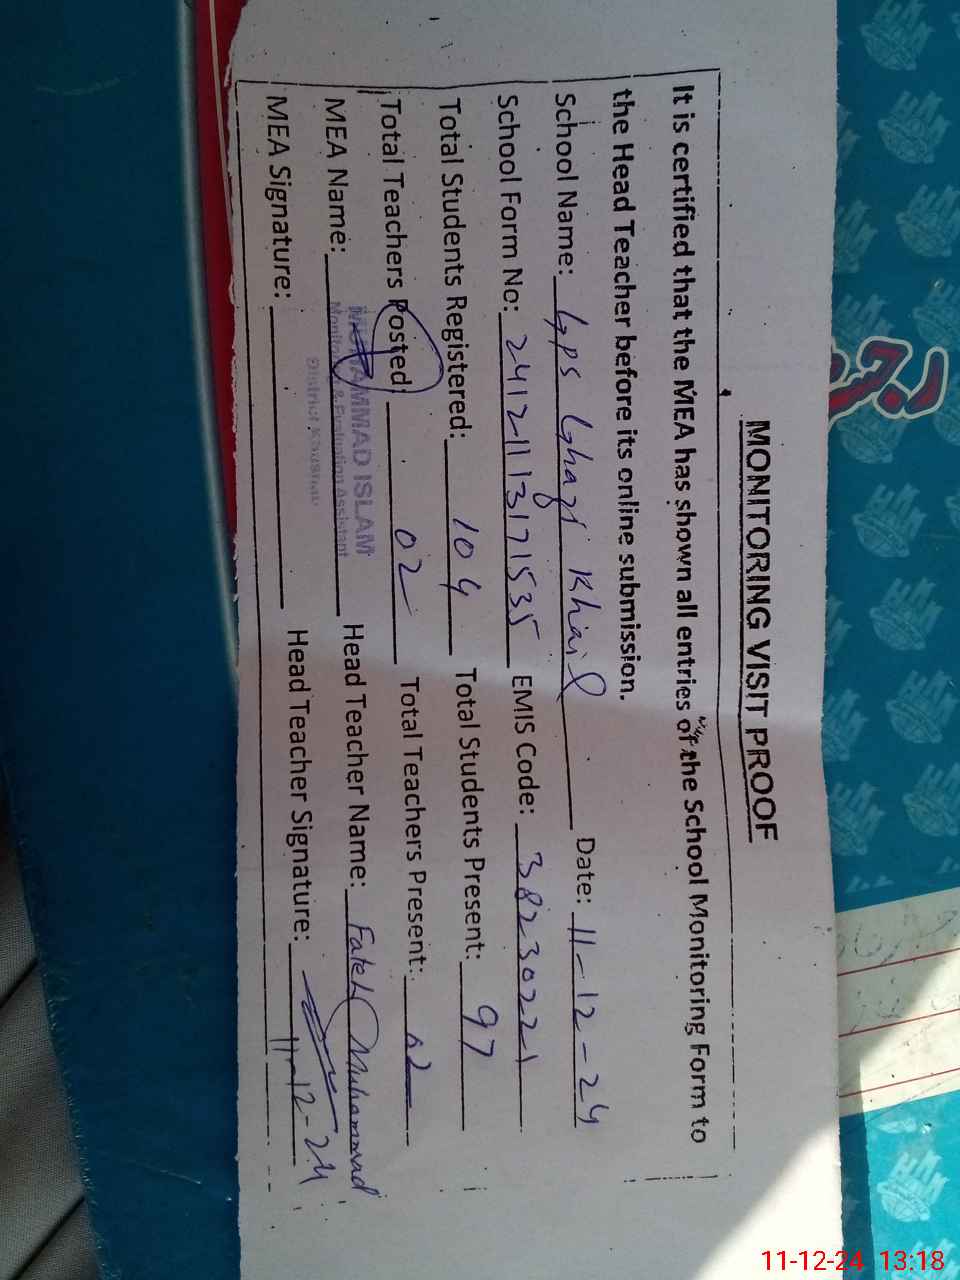 MONITORING VISIT PROOF
It is certified that the MEA has shown all entries of the School Monitoring Form to
the Head Teacher before its online submission.
School Name: GPS Ghazi Khail Date: 11-12-24
School Form No: 24121113171535 EMIS Code: 38230221
Total Students Registered: 104 Total Students Present: 97
Total Teachers Posted: 02 Total Teachers Present: 02
MEA Name: MUHAMMAD ISLAM Head Teacher Name: Fateh Muhammad
Monitoring & Evaluation Assistant
District Khushab
MEA Signature: Head Teacher Signature:
11-12-24
11-12-24 13:18